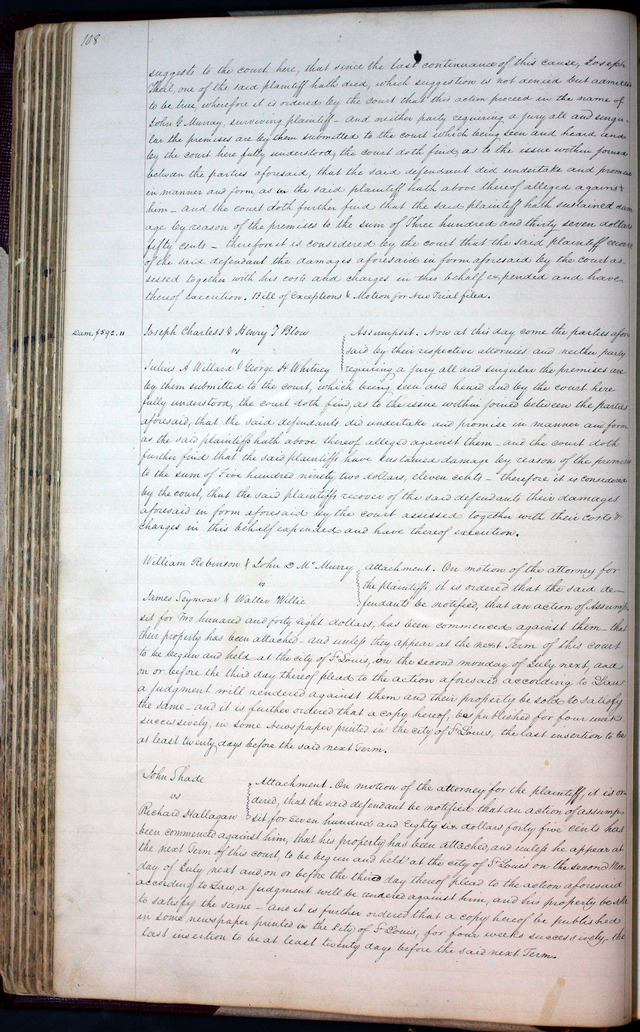 108
suggests to the court here, that since the last continuance of this cause, Joseph
Thal, one of the said plaintiff hath died, which suggestion is not denied but admitted
to be true, wherefore it is ordered by the court that this action proceed in the name of
John G Murray, surviving plaintiff – and neither party requiring a jury all and singu-
lar the premises are by them submitted to the court which being seen and heard and
by the court here fully understood, the court doth find, as to the issue within joined
between the parties aforesaid, that the said defendant did undertake and promise
in manner and form, as in the said plaintiff hath above thereof alleged against
him – and the court doth further find that the said plaintiff hath sustained dam
age by reason of the premises to the sum of Three hundred and thirty seven dollars
fifty cents – therefore it is considered by the court that the said plaintiff recover
of the said defendant the damages aforesaid in form aforesaid by the court as-
sessed together with his costs and charges in this behalf expended and have
thereof execution. Bill of Exceptions & Motion for New Trial filed.
Dam. $592.11
Joseph Charless & Henry T Blow
vs
Julius A Willard & George H Whitney
Assumpsit. Now at this day come the parties afore
said by their respective attornies and neither party
requiring a jury all and singular the premises are
by them submitted to the court, which being seen and heard and by the court here
fully understood, the court doth find, as to the issue within joined between the parties
aforesaid, that the said defendants did undertake and promise in manner and form
as the said plaintiffs hath above thereof alleged against them – and the court doth
further find that the said plaintiffs have sustained damage by reason of the premises
to the sum of Five hundred ninety two dollars, eleven cents – therefore it is considered
by the court, that the said plaintiffs recover of the said defendants their damages
aforesaid in form aforesaid by the court assessed together with their costs &
charges in this behalf expended and have thereof execution.
William Robinson & John D McMurry
vs
James Seymour & Walter Willie
Attachment. On motion of the attorney for
the plaintiffs, it is ordered that the said de-
fendants be notified, that an action of Assump
sit for Two hundred and forty eight dollars, has been commenced against them – that
their property has been attached – and unless they appear at the next Term of this court
to be begun and held at the city of St Louis, on the second monday of July next, and
on or before the third day thereof plead to the action aforesaid according to Law
a judgment will rendered against them and their property be sold to satisfy
the same – and it is further ordered that a copy hereof, be published for four weeks
successively, in some Newspaper printed in the city of St Louis, the last insertion to be
at least twenty days before the said next Term.
John Shade
vs
Richard Hallagan
Attachment. On motion of the attorney for the plaintiff, it is or-
dered, that the said defendant be notified that an action of assump-
sit for Seven hundred and Eighty six dollars forty five cents has
been commenced against him, that his property has been attached, and unless he appear at
the next Term of this court, to be begun and held at the city of St Louis on the second Mon
day of July next and, on or before the third day thereof plead to the action aforesaid
according to Law, a judgment will be rendered against him, and his property be sold
to satisfy the same – and it is further ordered that a copy hereof be published
in some newspaper printed in the City of St Louis, for four weeks successively – the
last insertion to be at least twenty days before the said next Term.